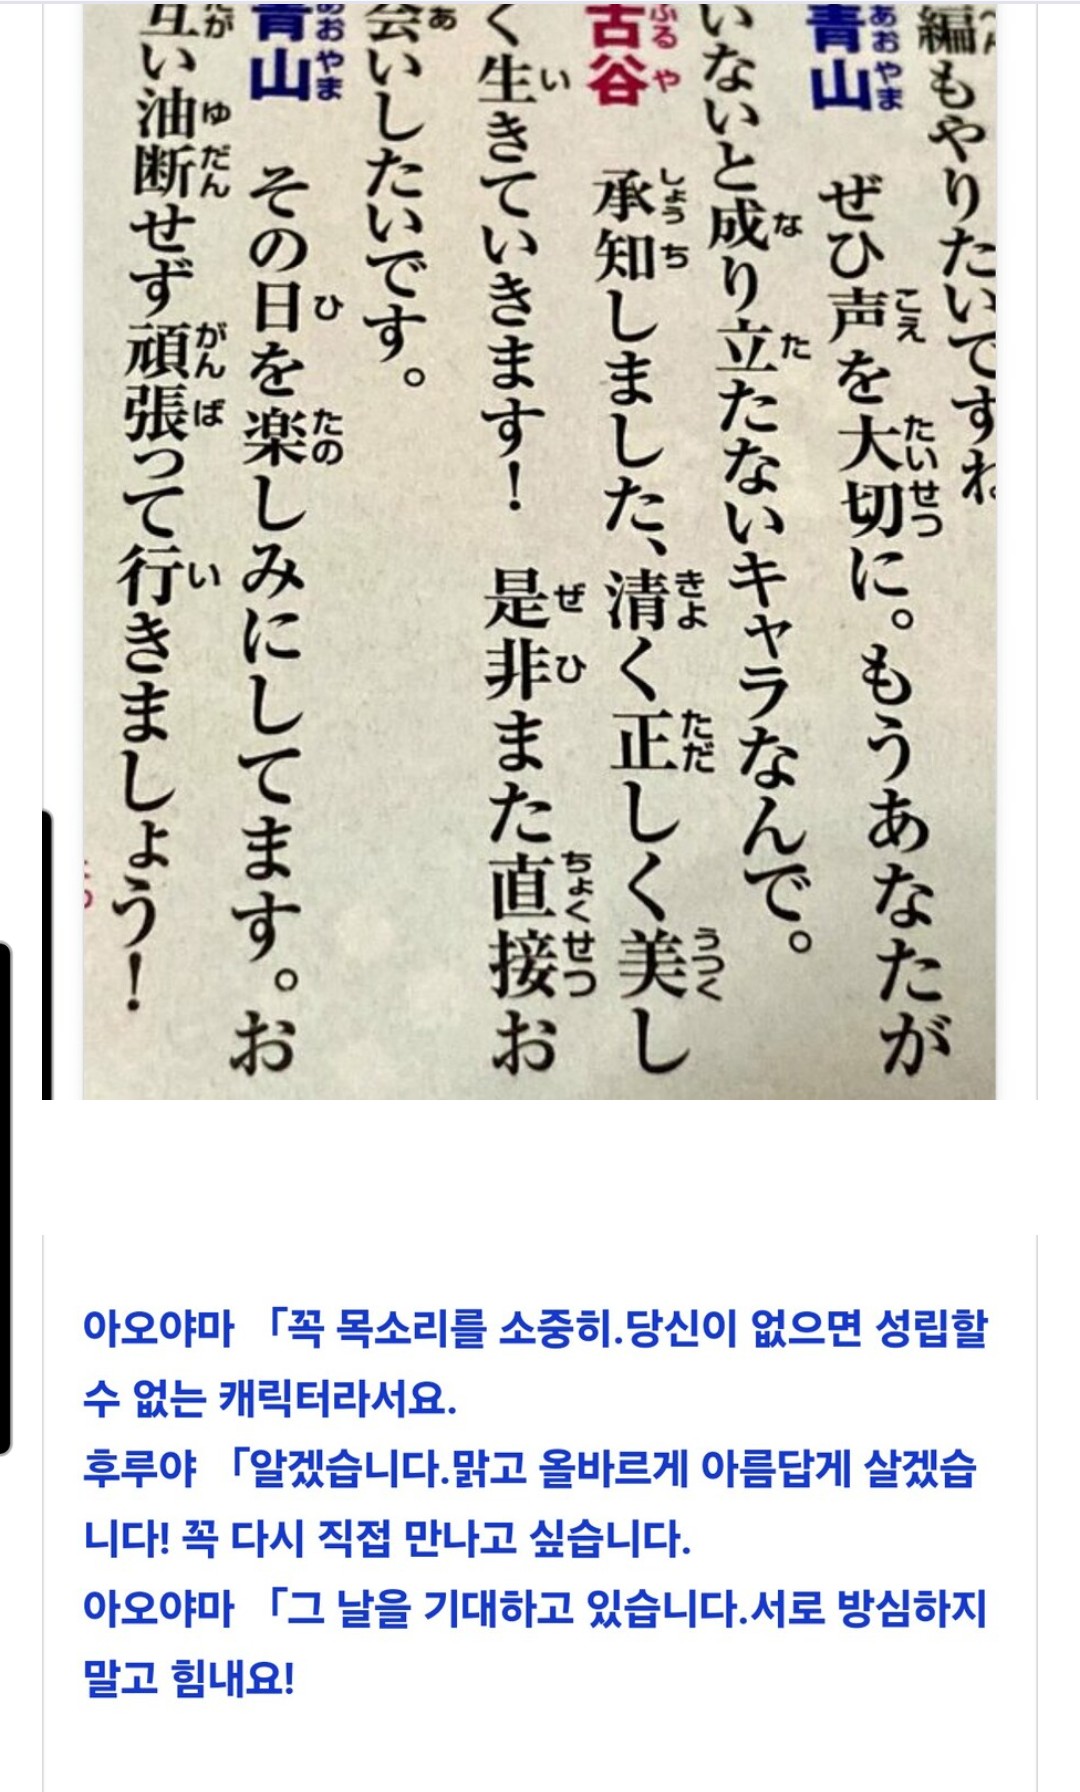 編もやりたいですね
青山　ぜひ声を大切に。もうあなたが
いないと成り立たないキャラなんで。
古谷　承知しました、清く正しく美し
く生きていきます！　是非また直接お
会いしたいです。
青山　その日を楽しみにしてます。お
互い油断せず頑張って行きましょう！
아오야마 「꼭 목소리를 소중히.당신이 없으면 성립할
수 없는 캐릭터라서요.
후루야 「알겠습니다.맑고 올바르게 아름답게 살겠습
니다! 꼭 다시 직접 만나고 싶습니다.
아오야마 「그 날을 기대하고 있습니다.서로 방심하지
말고 힘내요!